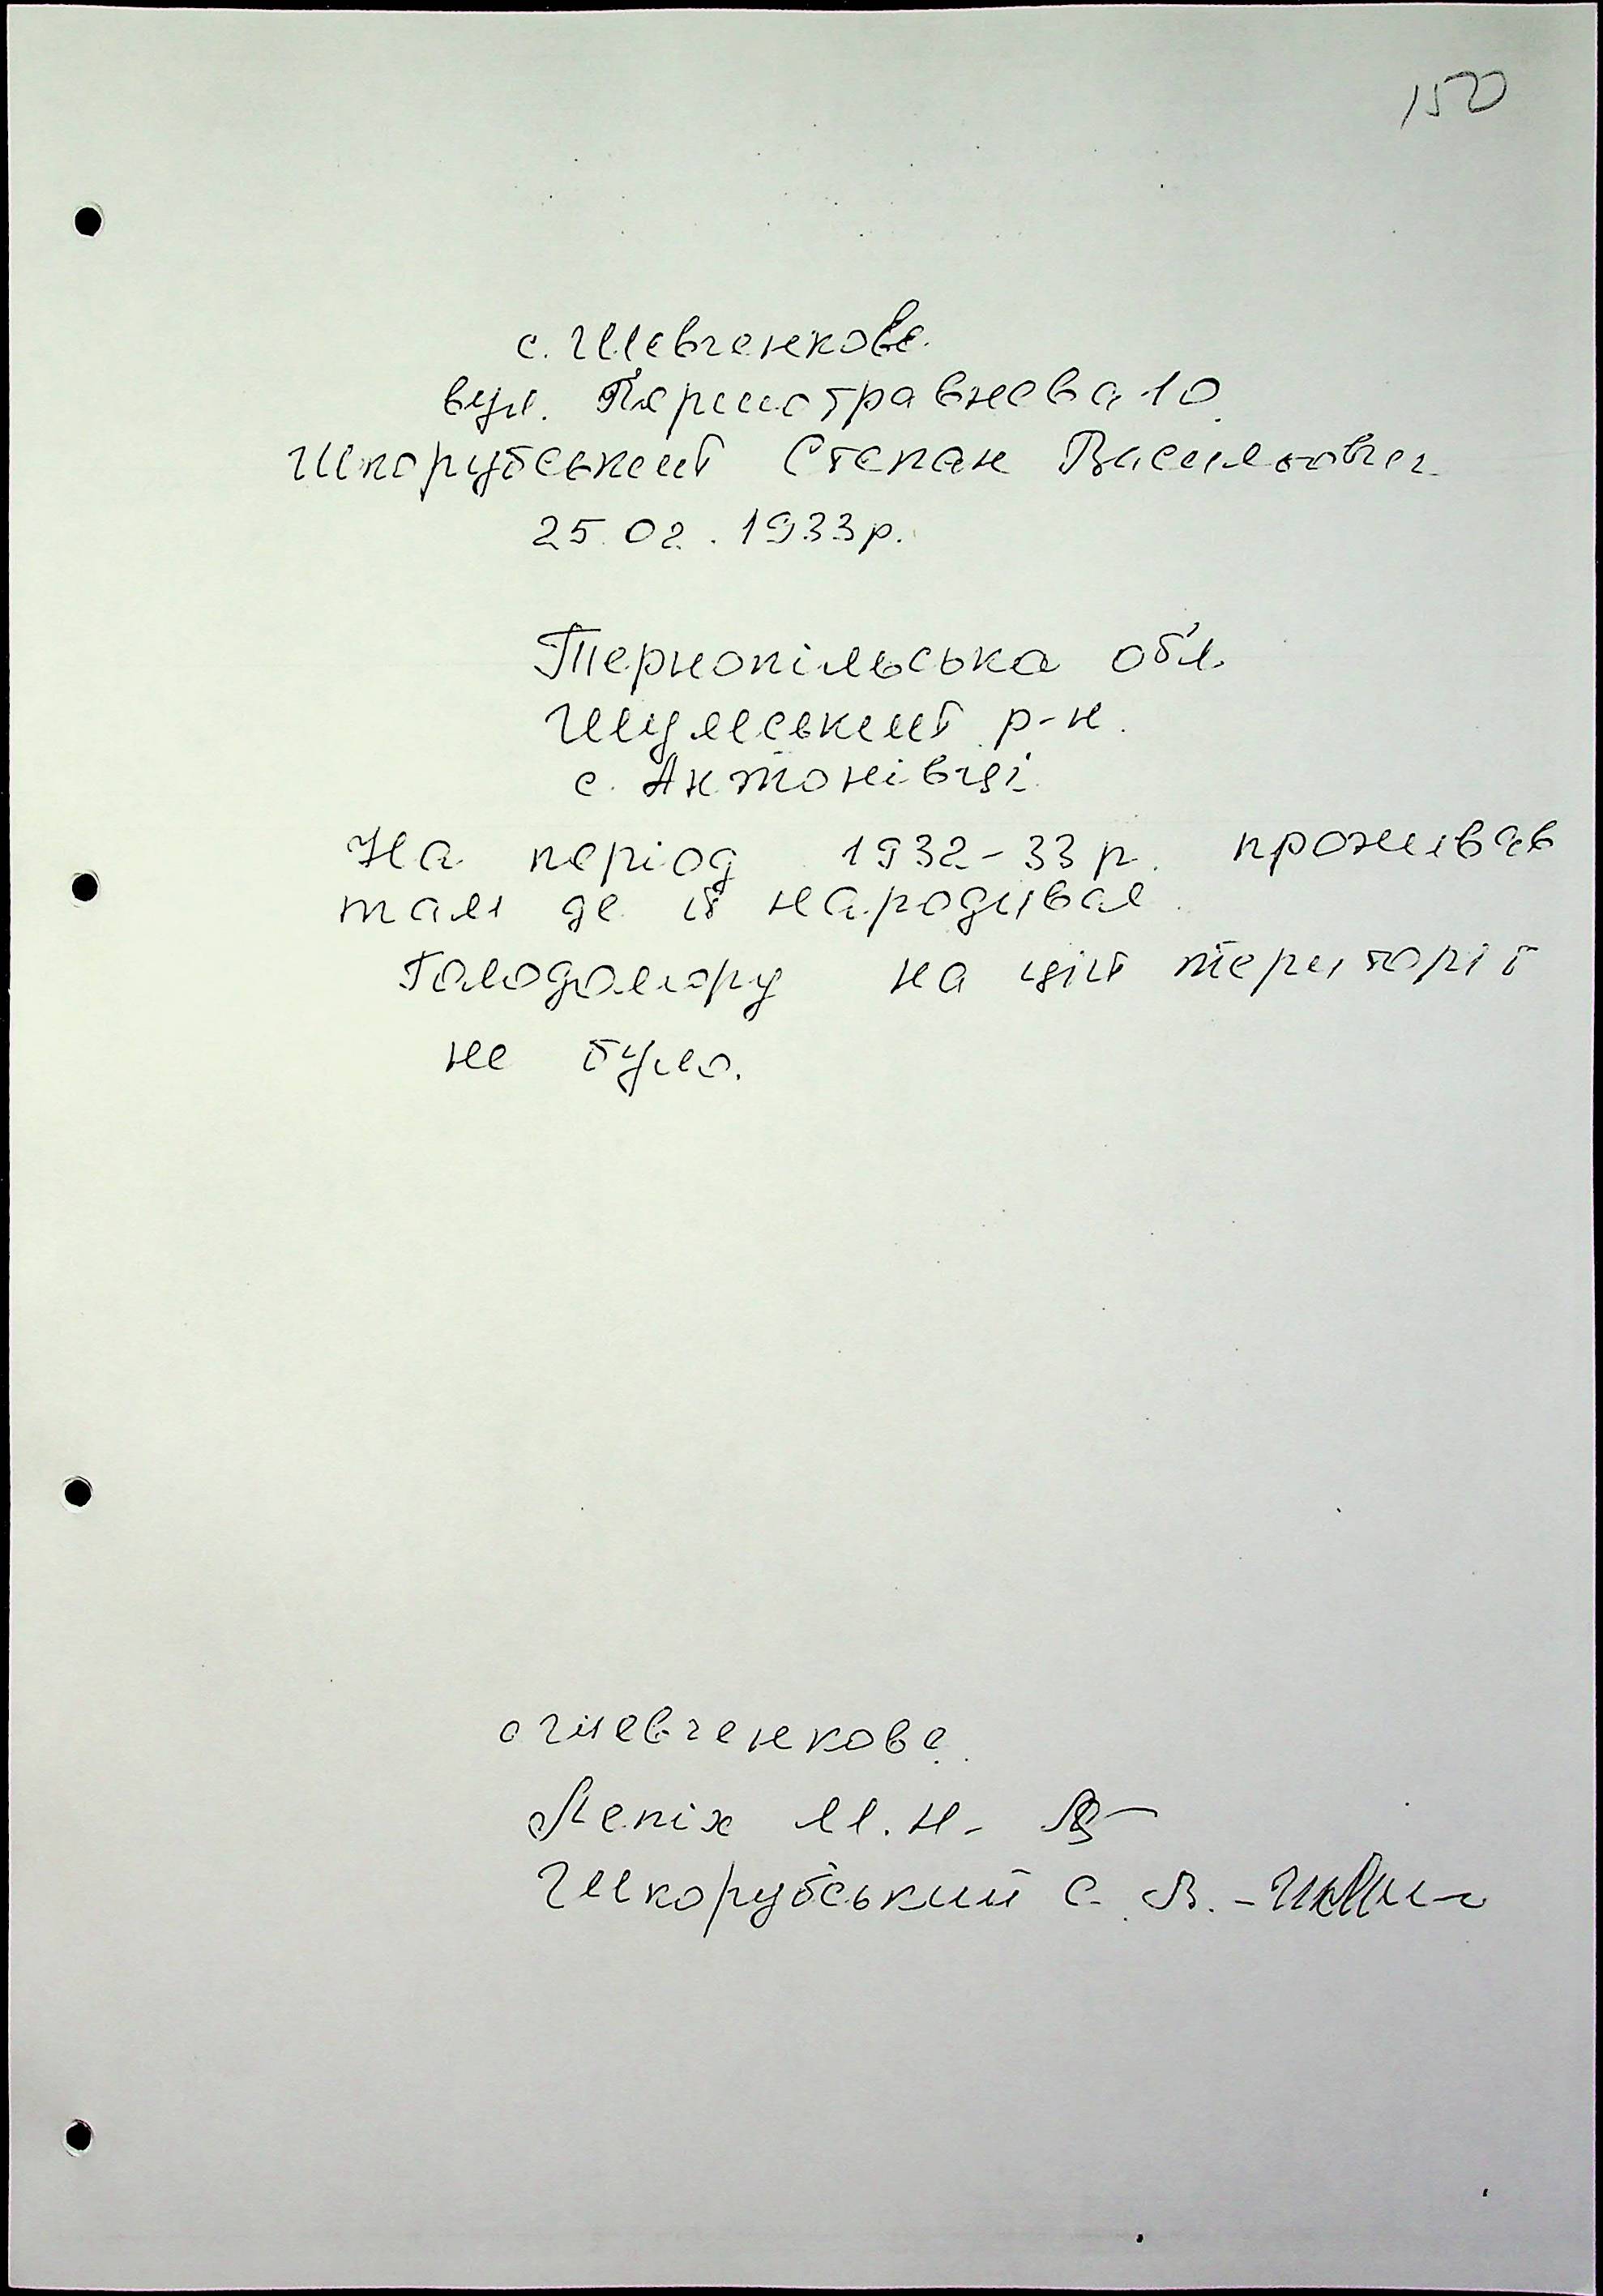 150
с. Шевченкове.
вул. Першотравнева 10
Шкорубський Степан Васильович
25.02.1933р.
Тернопільська обл.
Шумський р-н.
с. Антонівці.
На період 1932-33 р. проживав
там де й народився.
Голодомору на цій території
не було.
с Шевченкове.
Лепіх М.Н.
Шкорубський С.В. -